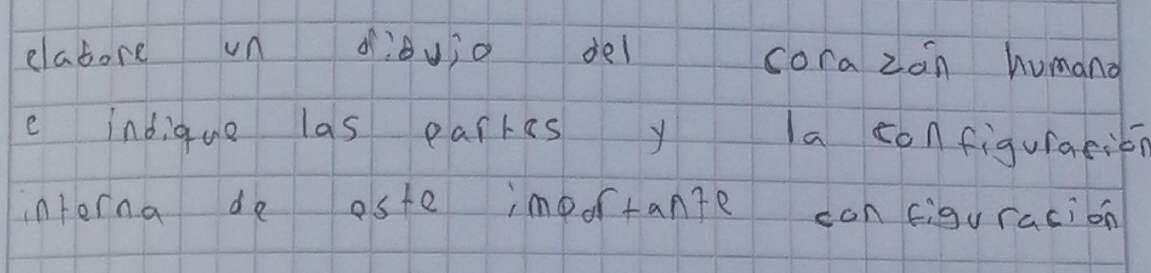 elabore un dibujo del corazón humano
e indique las partes y la configuración
interna de este importante configuración